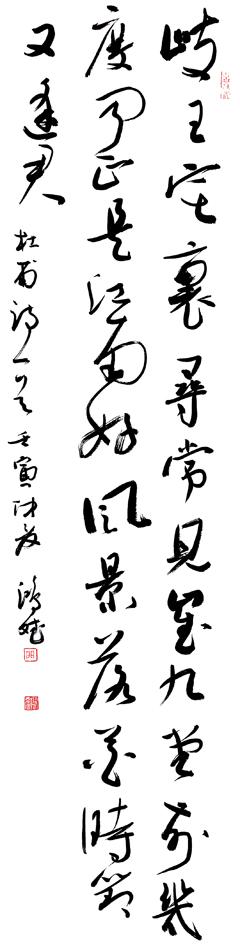 岐王宅裏尋常見崔九堂前幾
度聞正是江南好風景落花時節
又逢君 杜甫詩一首 壬寅 鴻